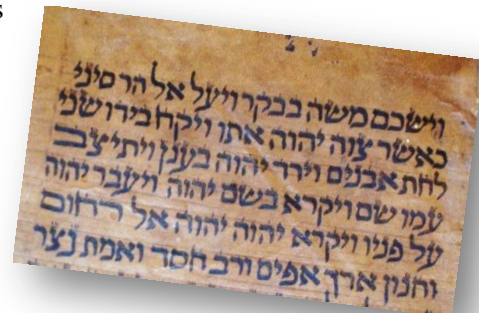 s
וישכם משה בבקר ויעל אל הר סיני
כאשר צוה יהוה אתו ויקח בידו שני
לחת אבנים וירד יהוה בענן ויתיצב
עמו שם ויקרא בשם יהוה ויעבר יהוה
על פניו ויקרא יהוה יהוה אל רחום
וחנון ארך אפים ורב חסד ואמת נצר